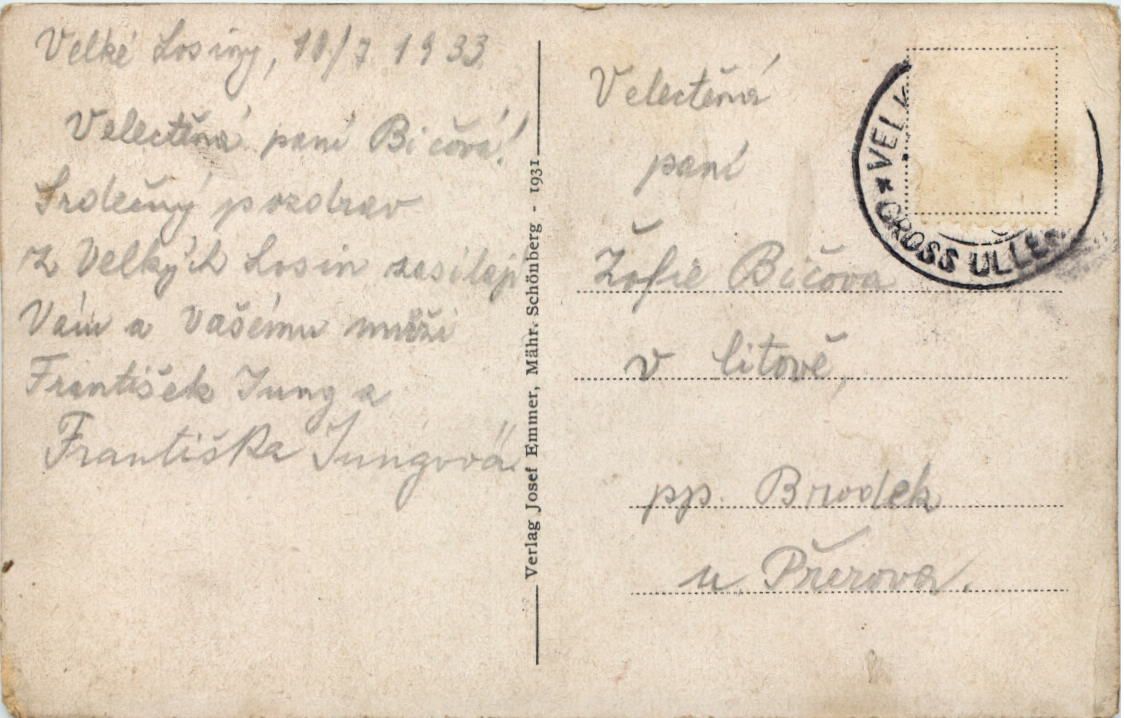 Velké Losiny, 10/7 1933
Velectěná paní Bičová!
Srdečný pozdrav
z Velkých Losin zasílají
Vám a Vašému muži
František Jung a
Františka Jungová
Verlag Josef Emmer, Mähr. Schönberg - 1931
Velectěná
paní
Žofie Bičova
v Citově,
pp. Brodek
u Přerova.
* VELK
GROSS ULLE